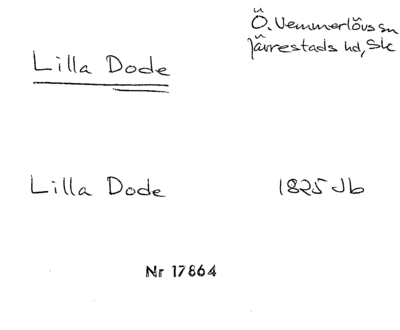 Ö. Vemmerlövs sn
Järrestads hd, Sk
Lilla Dode
Lilla Dode 1825 Jb
Nr 17864